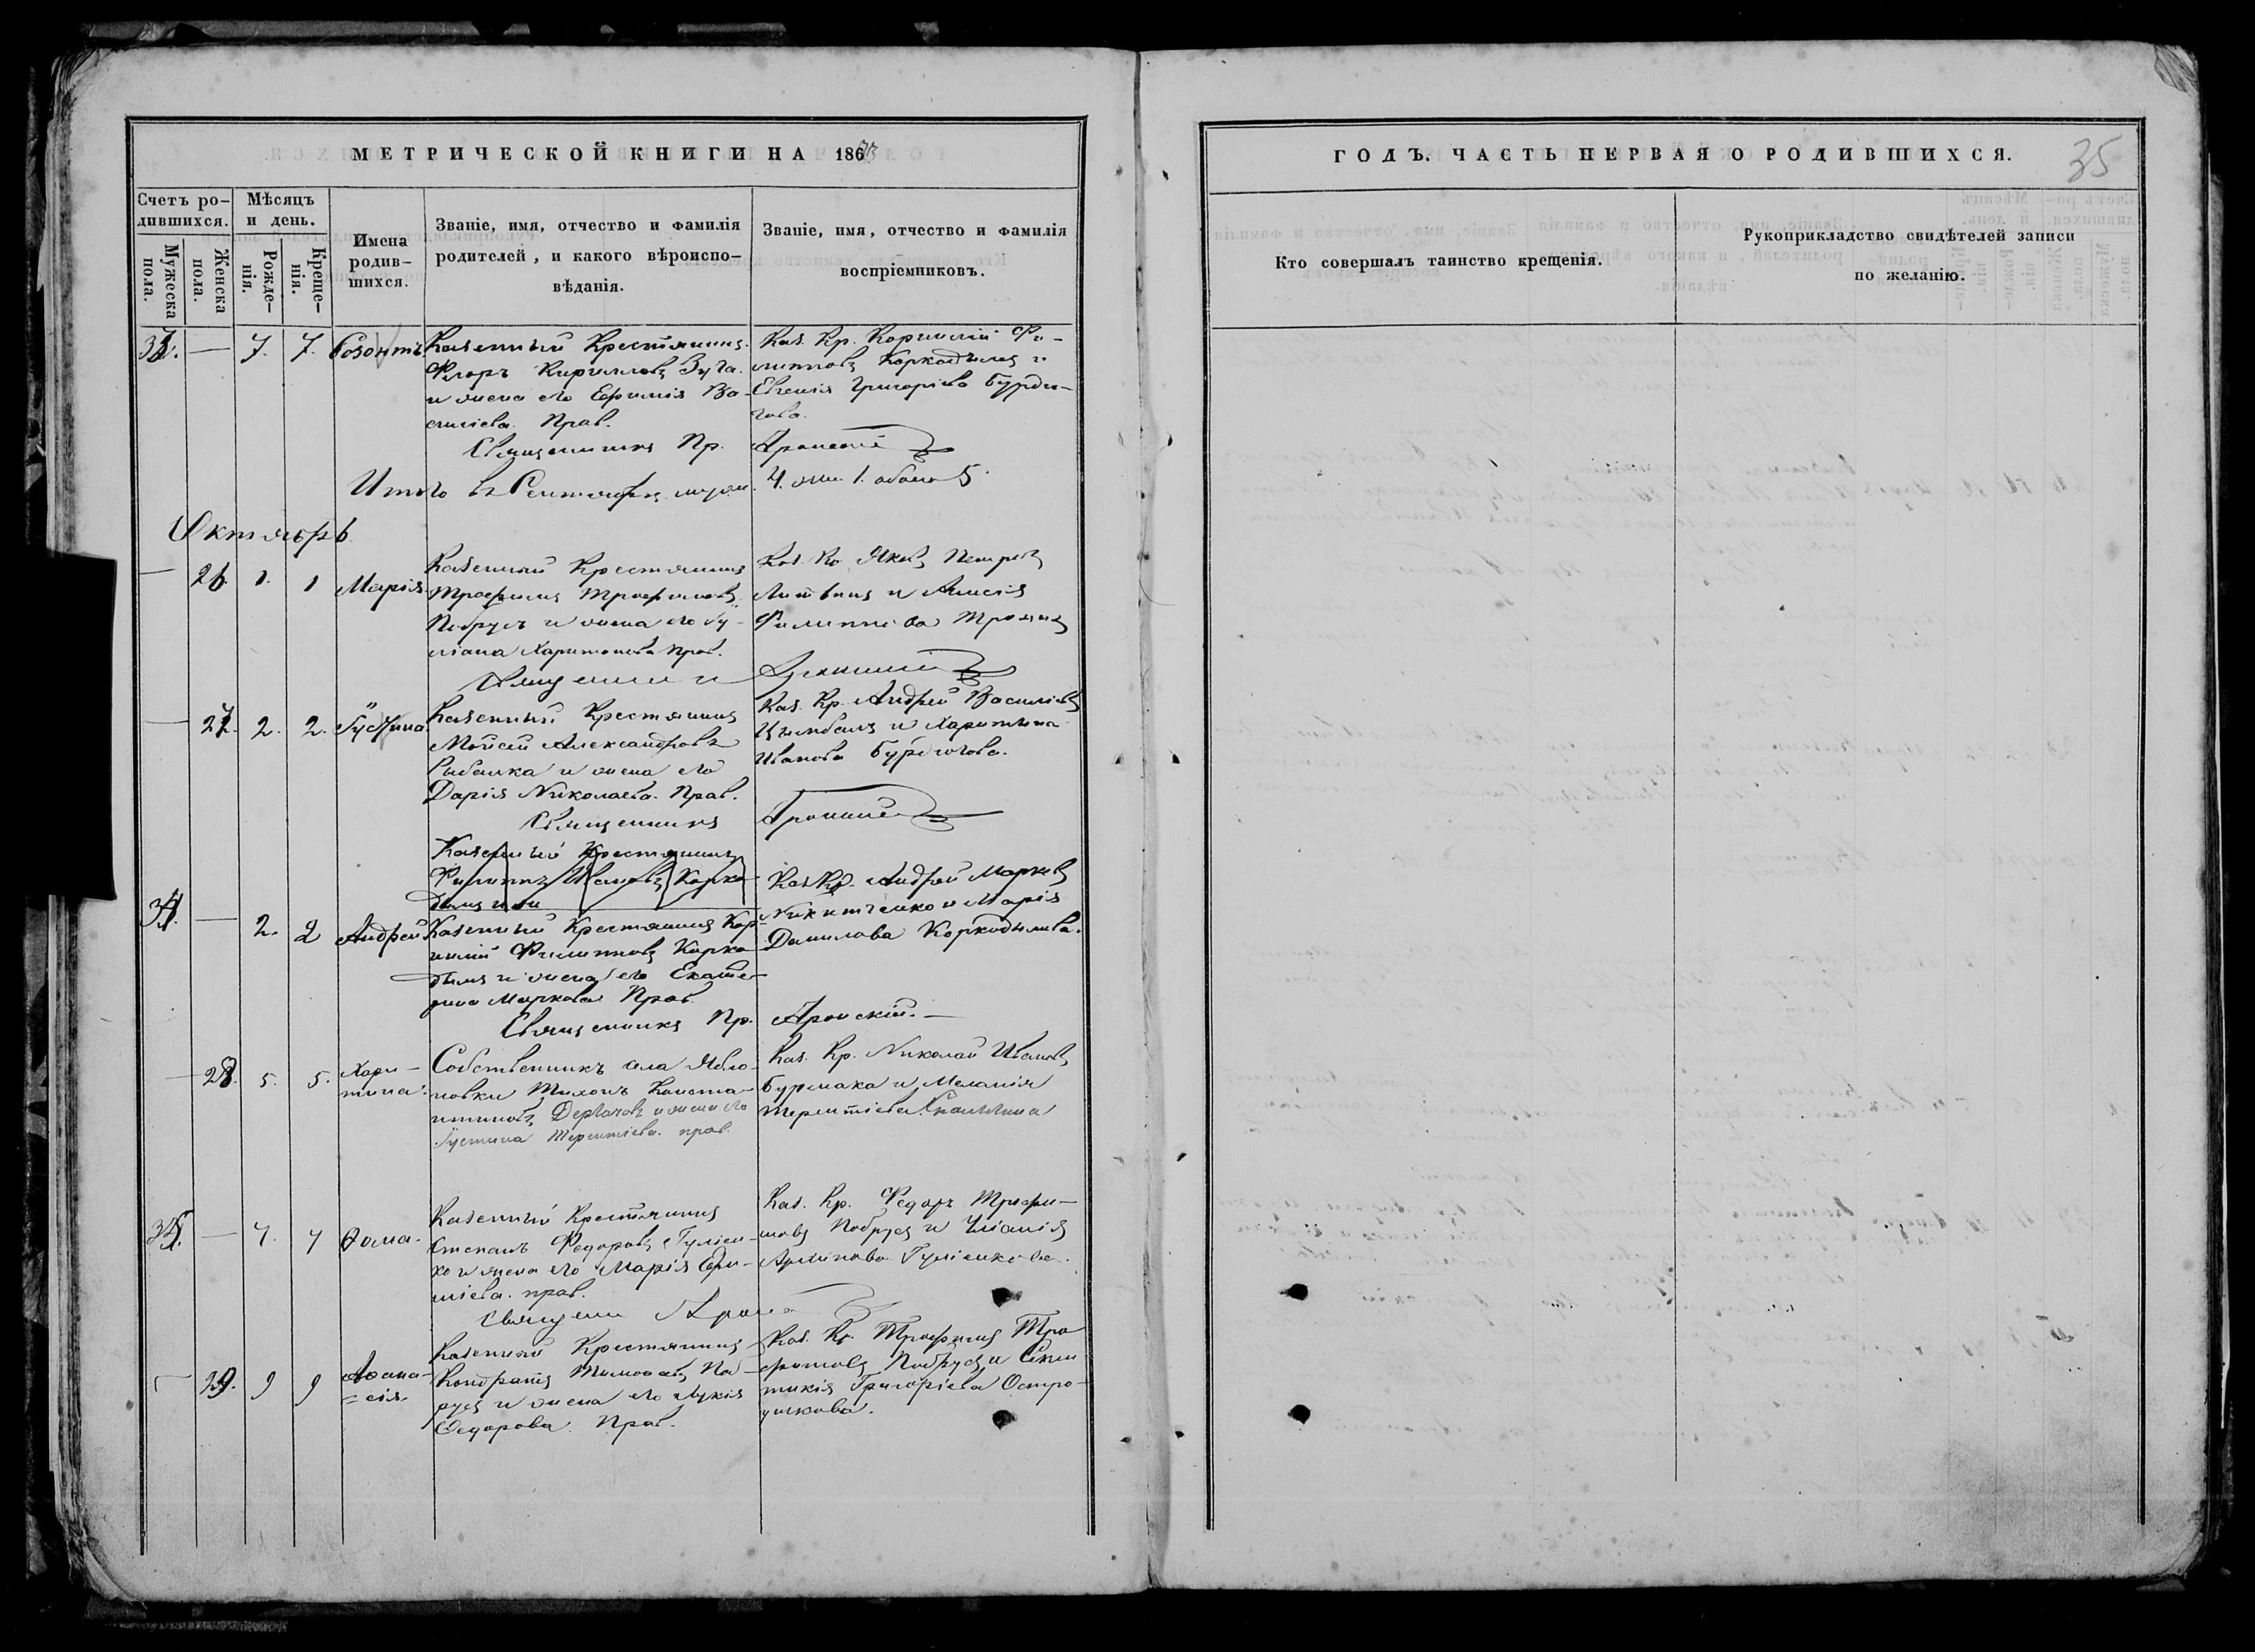 МЕТРИЧЕСКОЙ КНИГИ НА 186
Счетъ ро-
дившихся.
Мужеска
пола.
Женска
пола.
Мѣсяцъ
и день.
Рожде-
нія.
Креще-
нія.
Имена
родив-
шихся.
Званіе, имя, отчество и фамилія
родителей, и какого вѣроиспо-
вѣданія.
Званіе, имя, отчество и фамилія
воспріемниковъ.
— 7. 7. Созонтъ
Казенный Крестянинъ
Флоръ Кирилловъ
и жена его Ефимія Ва-
силіева. Прав.
Священникъ Пр.
Каз. Кр. Корнилій Фи-
липповъ Коркодылъ и
Евгенія Григоріева Бурдю-
гова.
Итого въ Сентябрѣ муж. 4. жен 1. обоего 5.
Октябрь
— 26. 1. 1 Марія
Казенный Крестянинъ
Трофимъ Трофимовъ
Побрусъ и жена его Іу-
ліана Харитонова прав.
Каз. Кр. Яковъ Петровъ
Литвинъ и
Филиппова
— 27. 2. 2. Іустина
Казенный Крестянинъ
Мойсей Александровъ
Рыбалка и жена его
Дарія Николаева. Прав.
Священникъ
Каз. Кр. Андрей Василіевъ
Цымбалъ и Харитина
Иванова Бурдюгова.
Казенный Крестянинъ
Филиппъ Ивановъ Корко-
дылъ и
34. — 2. 2 Андрей
Казенный Крестянинъ Кор-
нилій Филипповъ Корко-
дылъ и жена его Екате-
рина Маркова Прав.
Священникъ Пр.
Каз. Кр. Андрей Марковъ
Никитченко и Марія
Данилова Коркодылова.
— 28. 5. 5. Хари-
тина.
Собственникъ села Ябло-
новки Тихонъ Конста-
нтиновъ Дергачовъ и жена его
Іустина Терентіева. прав.
Каз. Кр. Николай Ивановъ
Бурлака и Меланія
Терентіева
35. — 7. 7 Ѳома.
Казенный Крестянинъ
Степанъ Федоровъ Гуліен-
ко и жена его Марія Ефи-
міева. прав.
Каз. Кр. Федоръ Трофи-
мовъ Побрусъ и Уліанія
Архипова Гуліенкова.
— 29. 9 9 Аѳана-
сія
Казенный Крестянинъ
Кондратъ Тимоѳеевъ По-
русъ и жена его Лукія
Ѳедорова. Прав.
Каз. Кр. Трофимъ Тро-
фимовъ Побрусъ и
Григоріева Остро-
ушкова.
ГОДЪ. ЧАСТЬ ПЕРВАЯ О РОДИВШИХСЯ.
35
Кто совершалъ таинство крещенія.
Рукоприкладство свидѣтелей записи
по желанію.